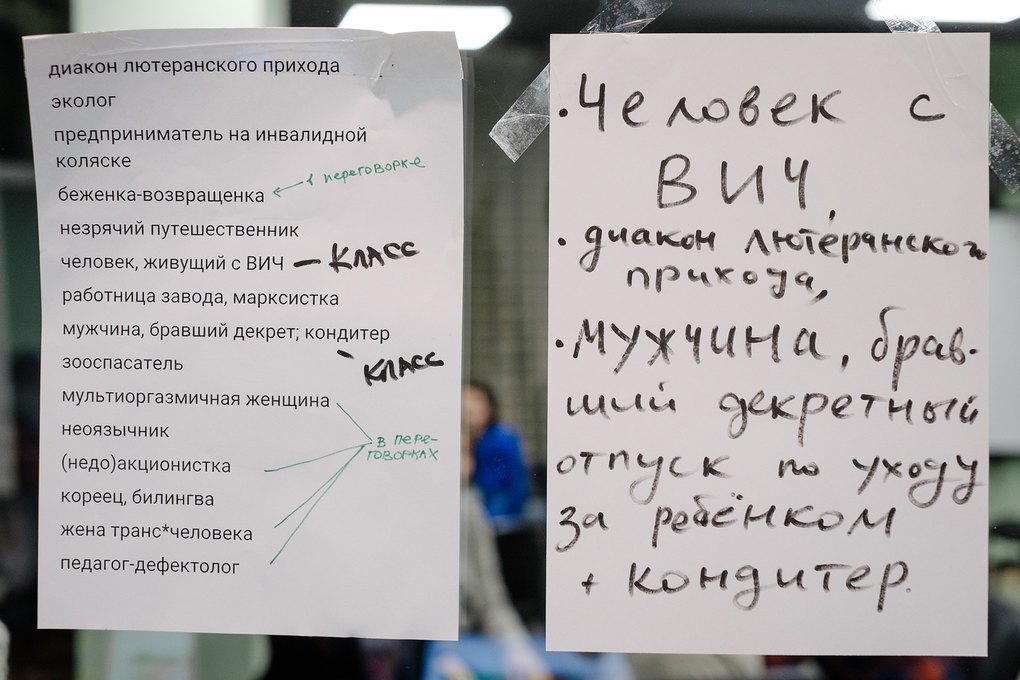 диакон лютеранского прихода
эколог
предприниматель на инвалидной
коляске
беженка-возвращенка
в переговорке
незрячий путешественник
человек, живущий с ВИЧ – КЛАСС
работница завода, марксистка
мужчина, бравший декрет; кондитер
зооспасатель
– КЛАСС
мультиоргазмичная женщина
неоязычник
в пере-
говорках
(недо)акционистка
кореец, билингва
жена транс*человека
педагог-дефектолог
·Человек с
ВИЧ,
·диакон лютеранского
прихода,
·мужчина, брав-
ший декретный
отпуск по уходу
за ребёнком
+ кондитер.